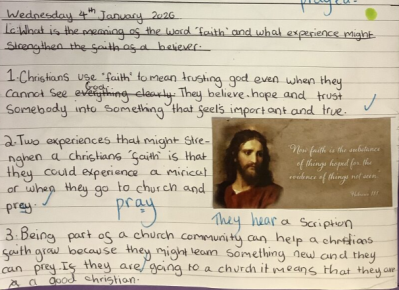 prayed.
Wednesday 4th January 2026
Lo: What is the meaning of the word "faith" and what experience might
strengthen the faith of a believer.
1. Christians use 'faith' to mean trusting god even when they
cannot see everything clearly. god. They believe, hope and trust
somebody into something that feels important and true. ✓
2. Two experiences that might stre-
nghen a christians 'faith' is that
they could experience a mirical
or when they go to church and
prey. ✓ pray
Now faith is the substance
of things hoped for, the
evidence of things not seen.
Hebrews 11:1
They hear a scription
3. Being part of a church community can help a christians
faith grow because they might learn something new and they
can prey. If they are going to a church it means that they are
a good christian.